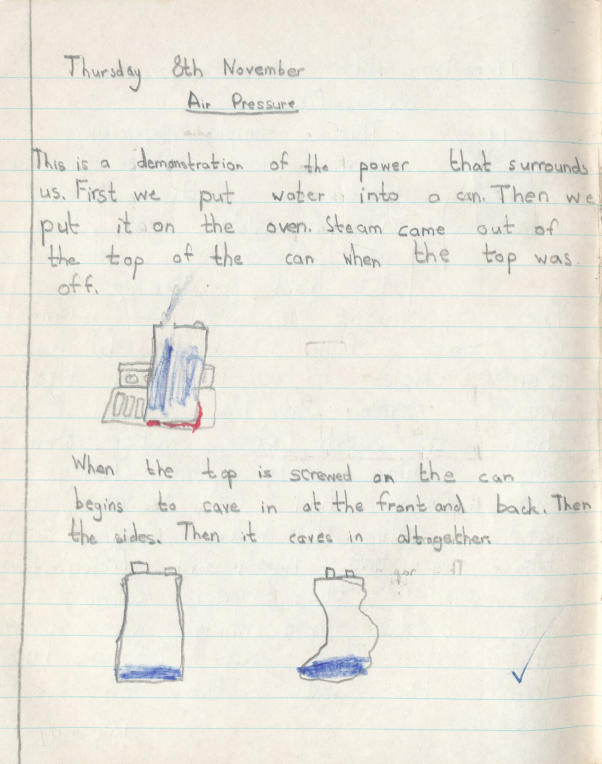 Thursday 8th November
Air Pressure
This is a demonstration of the power that surrounds
us. First we put water into a can. Then we
put it on the oven. Steam came out of
the top of the can when the top was
off.
When the top is screwed on the can
begins to cave in at the front and back. Then
the sides. Then it caves in altogether.